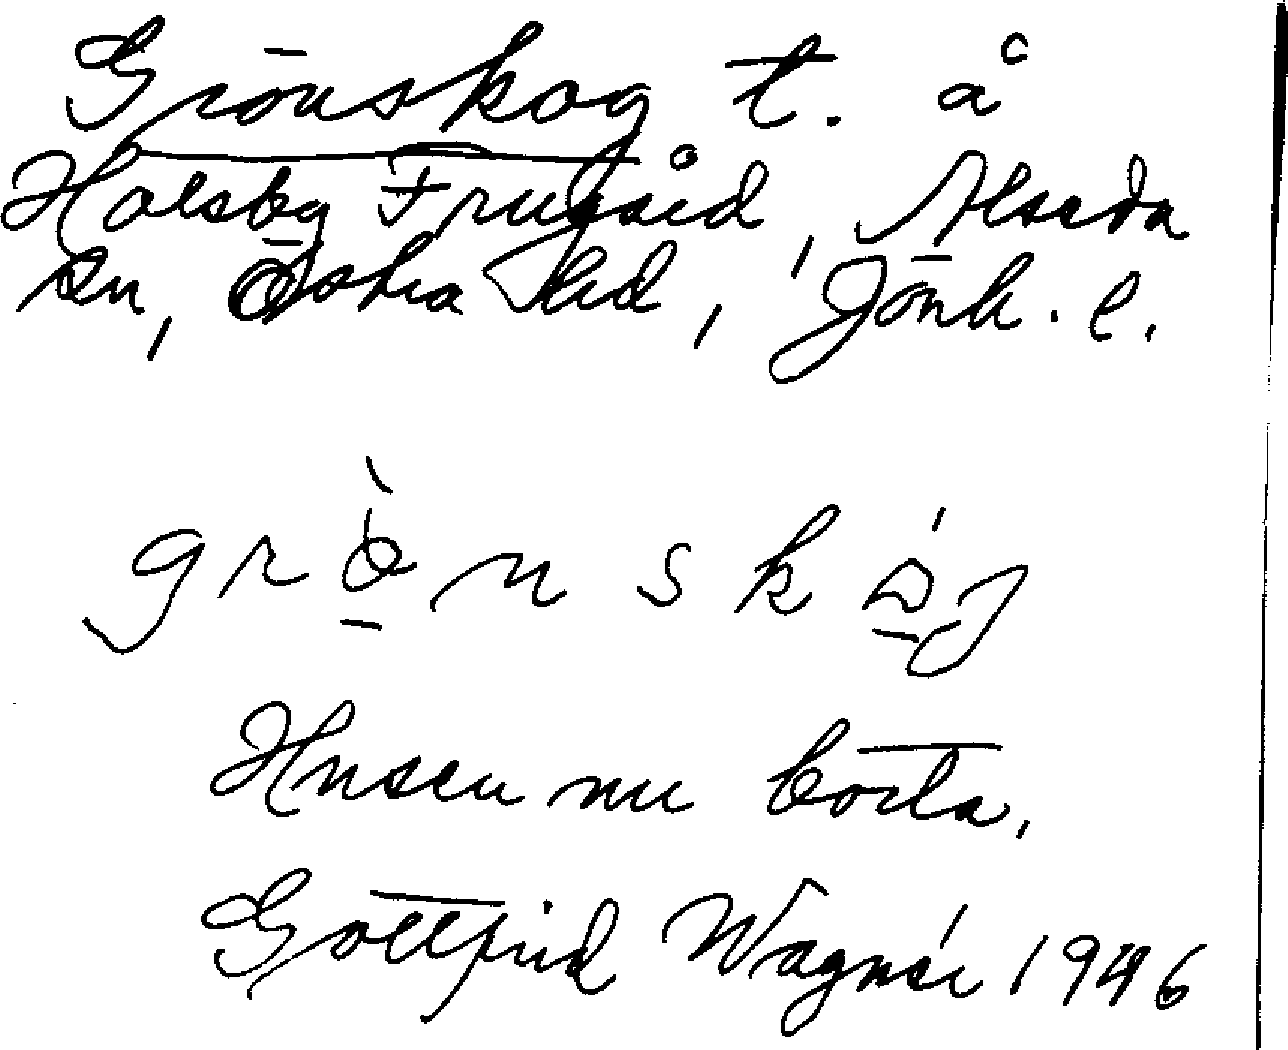 Grönskog t. å
Holsby Frugård, Alseda
sn, Östra hd, Jönk. l.
grö̀nskóg
Husen nu borta.
Gottfrid Wagnér 1946